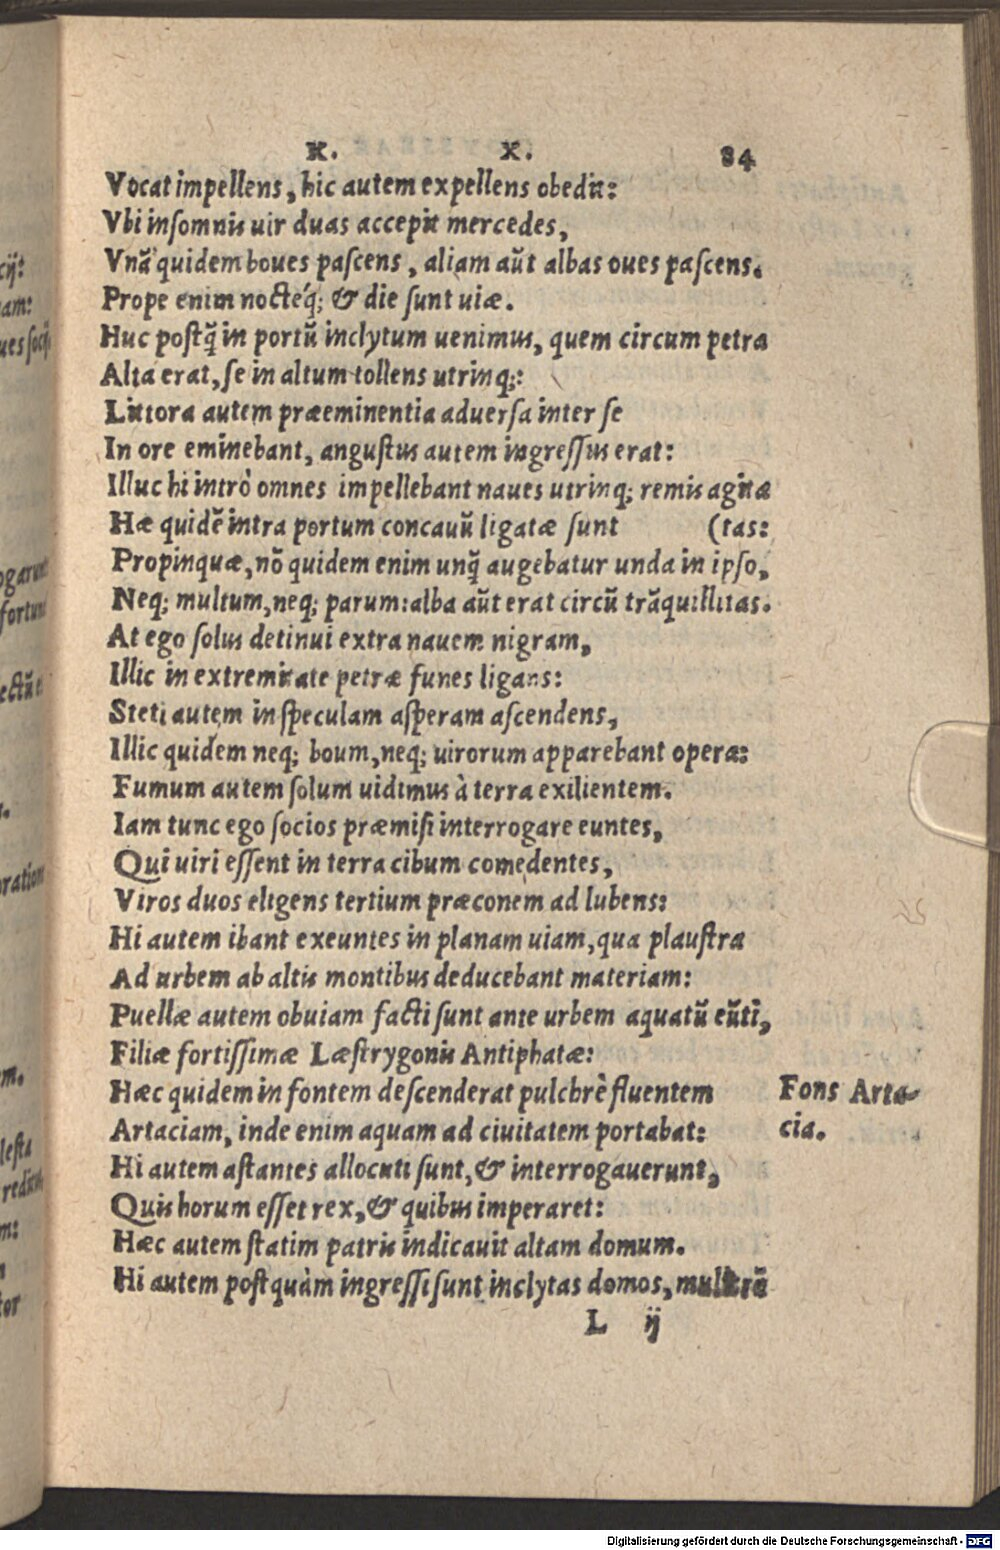 K. X. 84
Vocat impellens, hic autem expellens obedit:
Vbi insomnis uir duas accepit mercedes,
Vnã quidem boues pascens, aliam aũt albas oues pascens.
Prope enim nocteq́; & die sunt uiæ.
Huc postq̃ in portũ inclytum uenimus, quem circum petra
Alta erat, se in altum tollens utrinq;:
Littora autem præeminentia aduersa inter se
In ore eminebant, angustus autem ingressus erat:
Illuc hi intrò omnes impellebant naues utrinq; remis agita
Hæ quidẽ intra portum concauũ ligatæ sunt (tas:
Propinquæ, nõ quidem enim unq̃ augebatur unda in ipso,
Neq; multum, neq; parum: alba aũt erat circũ trãquillitas.
At ego solus detinui extra nauem nigram,
Illic in extremitate petræ funes ligans:
Steti autem in speculam asperam ascendens,
Illic quidem neq; boum, neq; uirorum apparebant opera:
Fumum autem solum uidimus à terra exilientem.
Iam tunc ego socios præmisi interrogare euntes,
Qui uiri essent in terra cibum comedentes,
Viros duos eligens tertium præconem ad lubens:
Hi autem ibant exeuntes in planam uiam, qua plaustra
Ad urbem ab altis montibus deducebant materiam:
Puellæ autem obuiam facti sunt ante urbem aquatũ eũti,
Filiæ fortissimæ Læstrygonis Antiphatæ:
Hæc quidem in fontem descenderat pulchrè fluentem
Fons Arta-
Artaciam, inde enim aquam ad ciuitatem portabat:
cia.
Hi autem astantes allocuti sunt, & interrogauerunt,
Quis horum esset rex, & quibus imperaret:
Hæc autem statim patris indicauit altam domum.
Hi autem postquàm ingressi sunt inclytas domos, multrã
L ij
Digitalisierung gefördert durch die Deutsche Forschungsgemeinschaft - DFG